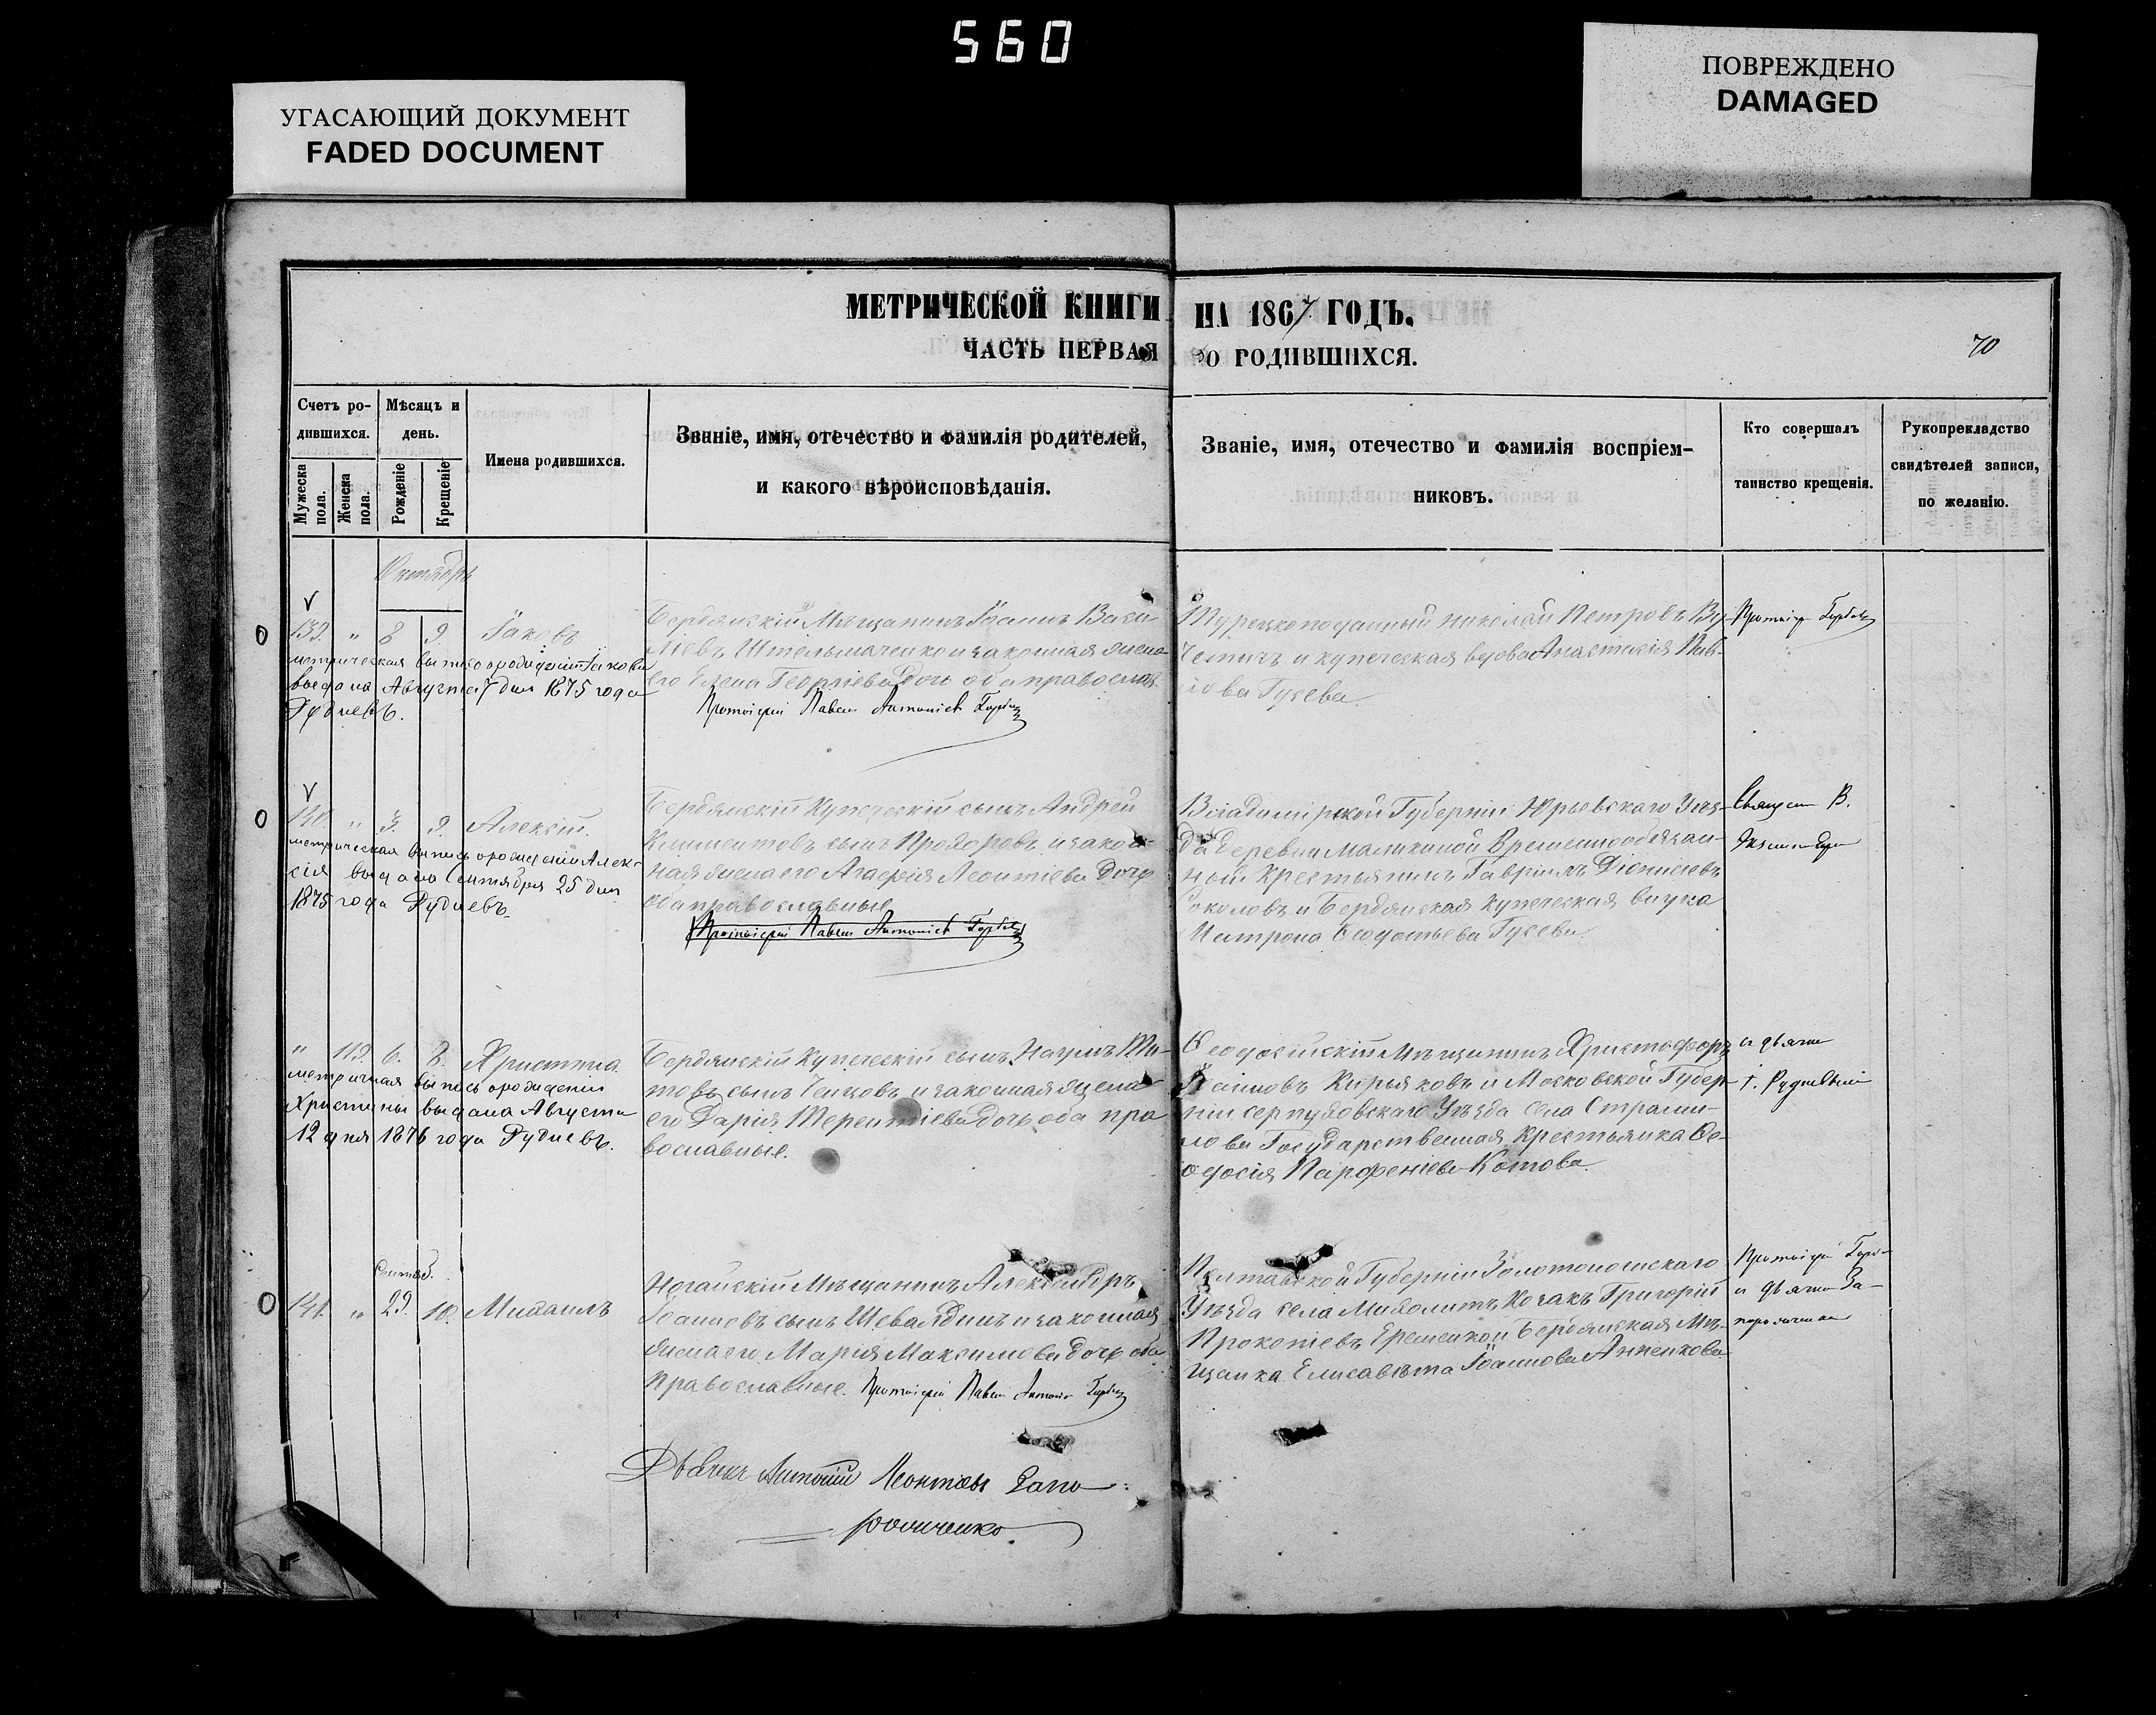 560
УГАСАЮЩИЙ ДОКУМЕНТ
FADED DOCUMENT
ПОВРЕЖДЕНО
DAMAGED
МЕТРИЧЕСКОЙ КНИГИ НА 1867 ГОДЪ.
ЧАСТЬ ПЕРВАЯ О РОДИВШИХСЯ.
70
Счетъ ро-
дившихся.
Мужеска пола.
Женска пола.
Мѣсяцъ и
день.
Рожденіе
Крещеніе
Имена родившихся.
Званіе, имя, отечество и фамилія родителей,
и какого вѣроисповѣданія.
Званіе, имя, отечество и фамилія воспріем-
никовъ.
Кто совершалъ
таинство крещенія.
Рукоприкладство
свидѣтелей записи,
по желанію.
Октябрь
139. " 8 9. Іаковъ
метрическая выпись о рождѣніи Іакова
выдана Августа 7 дня 1875 года
Рудневъ.
Бердянскій Мѣщанинъ Іоаннъ Васи-
ліевъ Штельмаченко и законная жена
его Елена Георгіева дочь оба православ.
Протоіерей Павелъ Антоніевъ
Турецкоподанный Николай Петровъ
и купеческая вдова Анастасія Пав-
лова Гусева.
Протоіерей
140. " 3. 9. Алексій.
метрическая выпись о рождѣніи Алек-
сія выдана Сентября 25 дня
1875 года Рудневъ.
Бердянскій Купеческій сынъ Андрей
Климентовъ сынъ Прохоровъ и закон-
ная жена его Агафія Леонтіева дочь
оба православные
Протоіерей Павелъ Антоніевъ
Владимірской Губерніи Юрьевскаго Уѣз-
да деревни Маликиной Временнообязан-
ной Крестьянинъ Гавріилъ Діонисіевъ
Соколовъ и Бердянская Купеческая внука
Матрона Ѳедотьева Гусева.
Священ В.
" 119. 6. 8. Христина
метричная выпись о рождении
Христины выдана Августа
12 дня 1876 года Рудневъ.
Бердянскій Купеческій сынъ Наумъ Ти-
товъ сынъ и законная жена
его Дарія Терентіева дочь оба пра-
вославные.
Ѳеодосійскій Мѣщанинъ Христофоръ
Іоанновъ Кирьяковъ и Московской Губер-
ніи серпуховскаго Уѣзда села
Государственная Крестьянка Ѳе-
одосія Парфеніева Котова.
и дьячи
Сентяб.
141. " 29. 10. Михаилъ
Ногайскій Мѣщанинъ Александръ
Іоанновъ сынъ и законная
жена его Марія Максимова дочь оба
Православные. Протоіерей Павелъ
Полтавской Губерніи Золотоношскаго
Уѣзда села Козакъ Григорій
Прокопіевъ Еременко и Бердянская Мѣ-
щанка Елисавѣта Іоаннова Анненкова
Протоіерей
и дьячи За-
Дьячекъ Антоній Леонтіевъ Запо-
рожченко